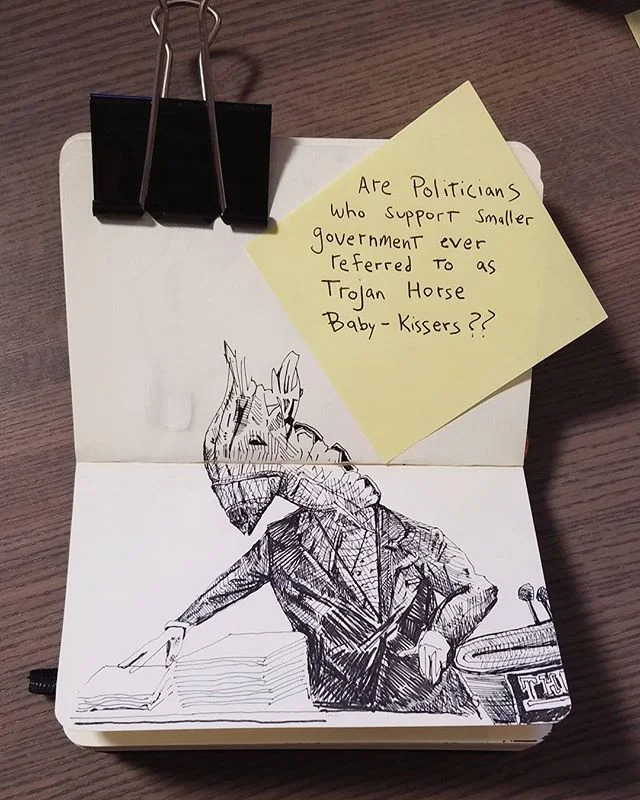 Are Politicians
who support smaller
government ever
referred to as
Trojan Horse
Baby-Kissers??